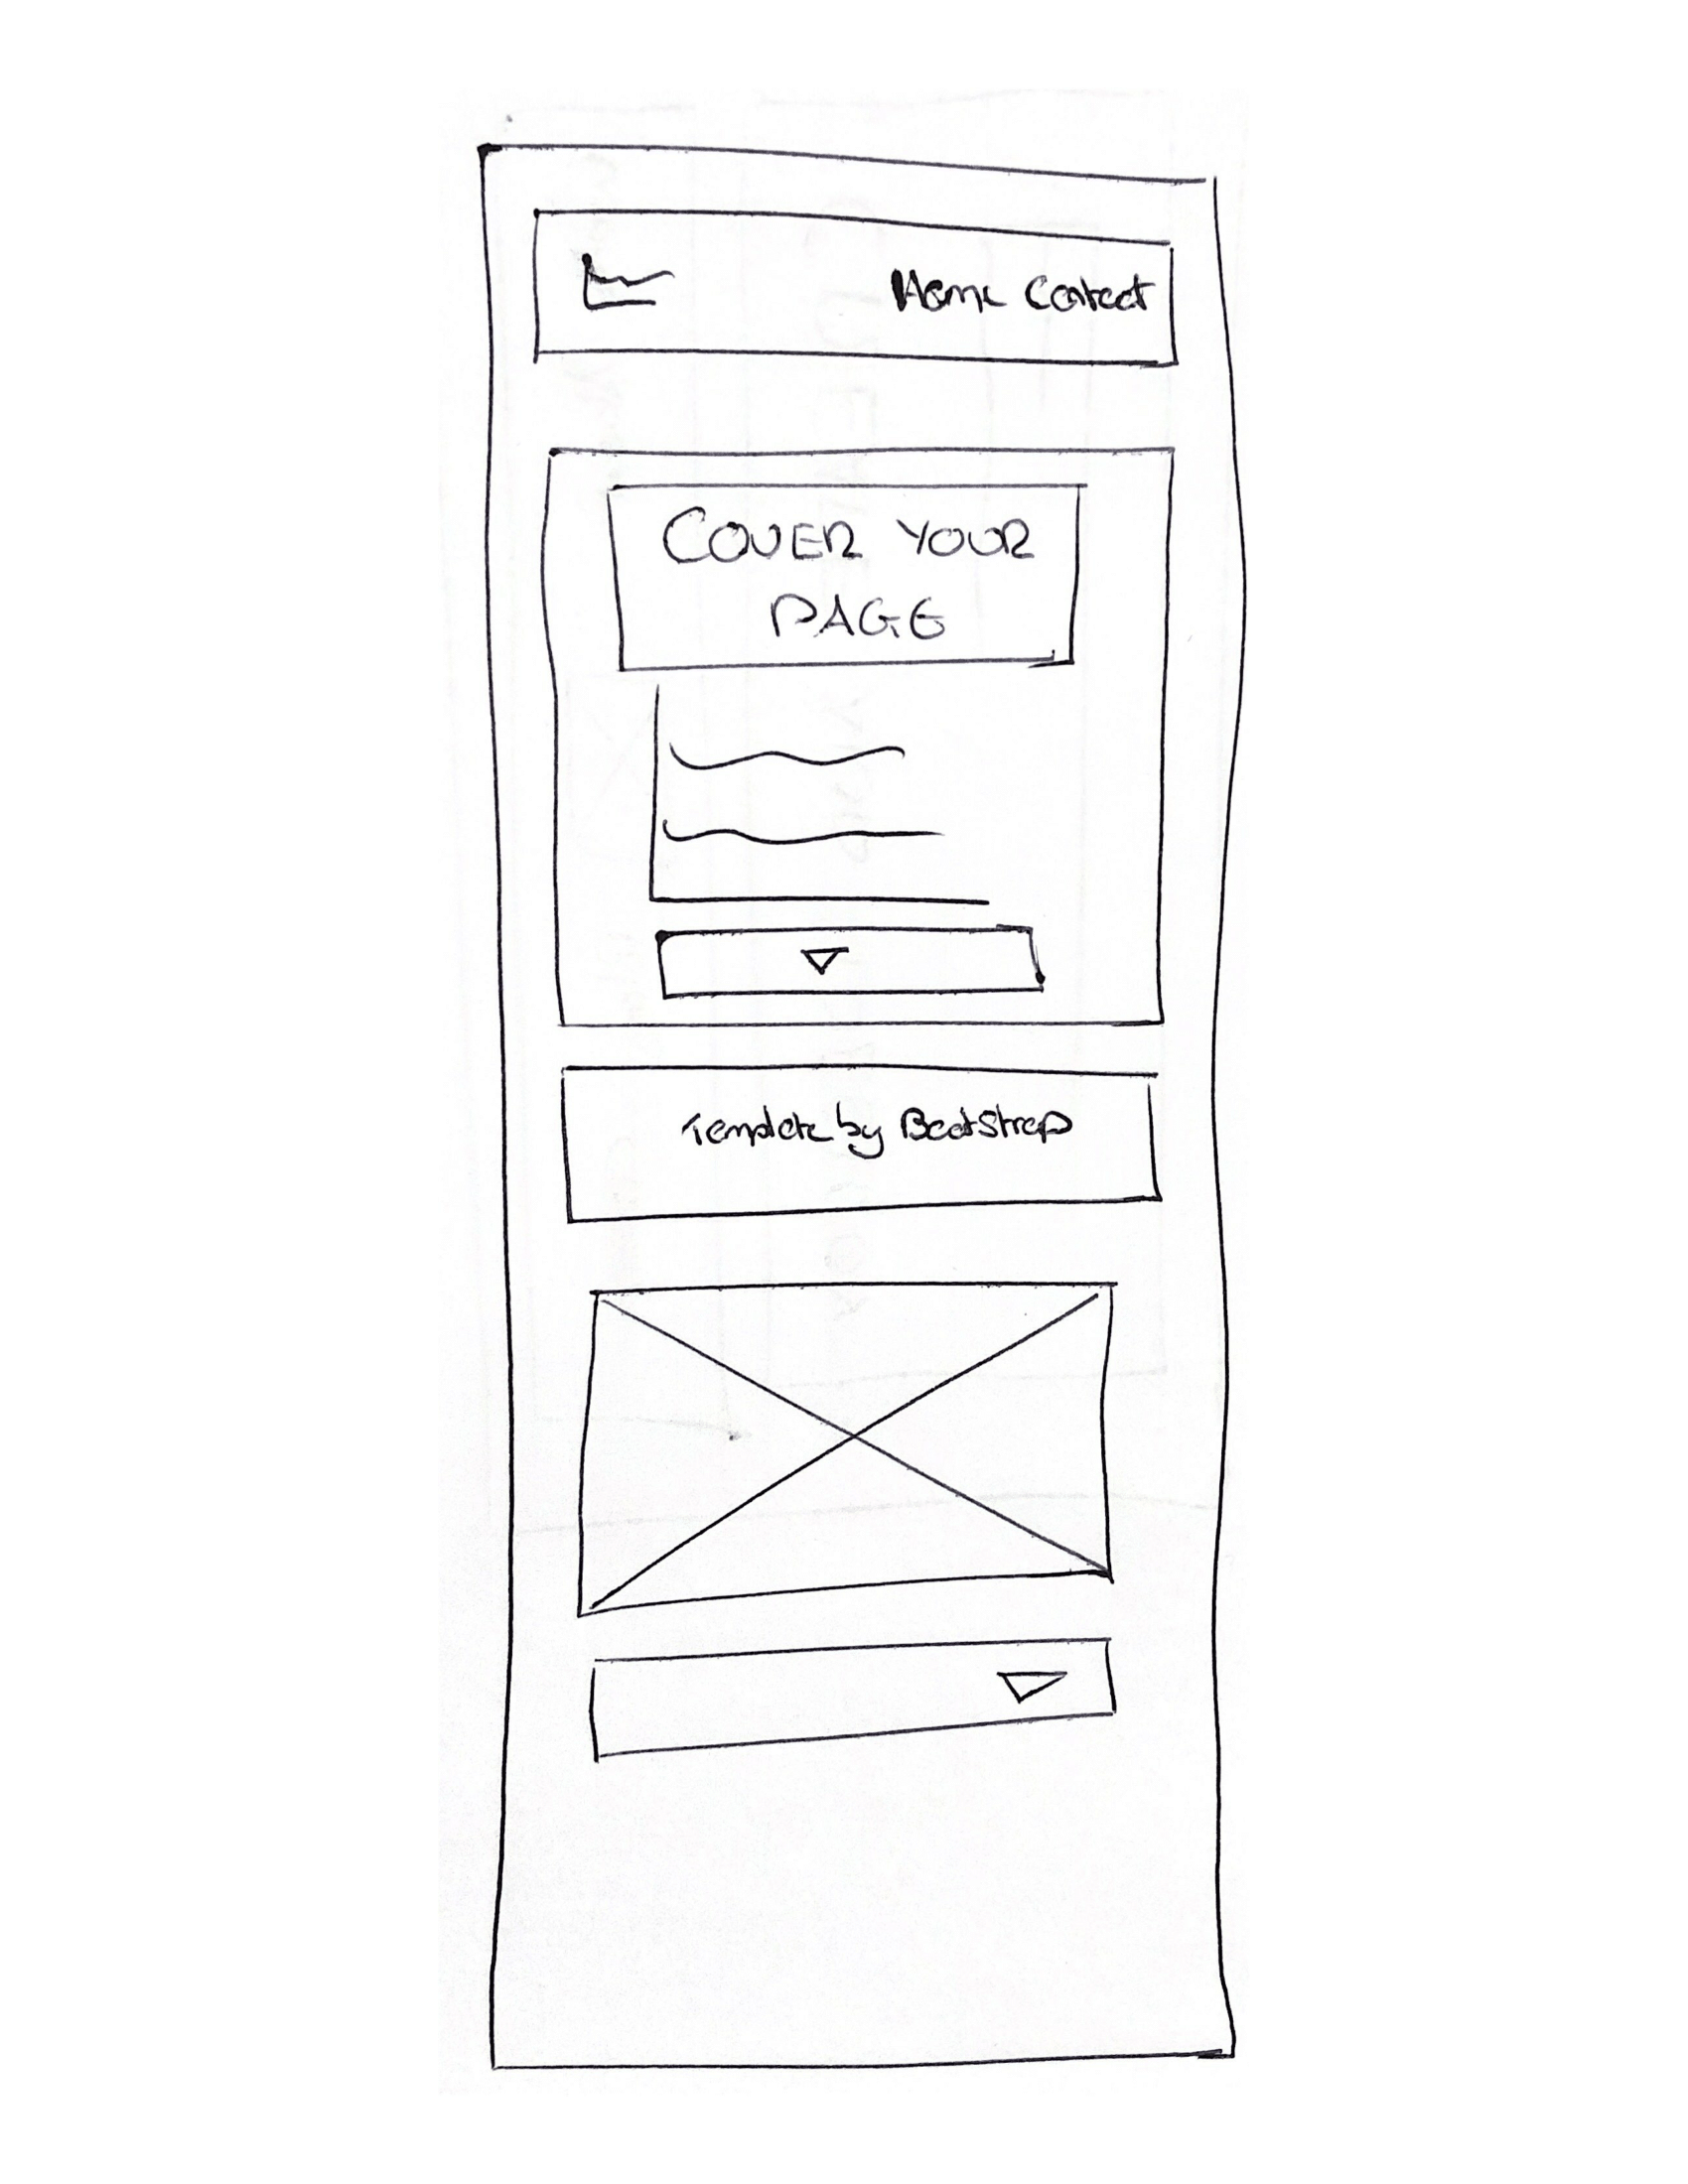 Home Contact
COVER YOUR
PAGE
Template by BootStrap